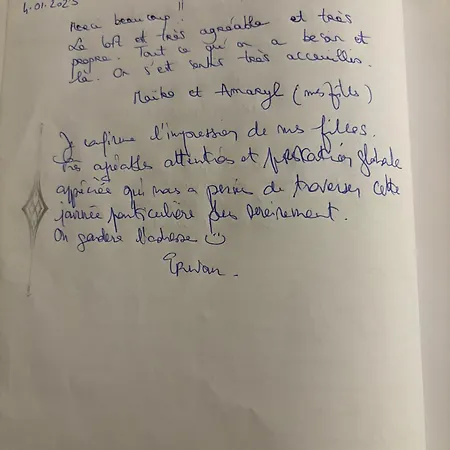 4.01.2023
Merci beaucoup !!
Le loft est très agréable et très
propre. Tout ce qu'on a besoin est
là. On s'est senties très accueillies.
Maïke et Amaryl (mes filles)
Je confirme l'impression de mes filles.
Très agréables attentions et prestation globale
appréciée qui nous a permis de traverser cette
journée particulière plus sereinement.
On gardera l'adresse ☺
Erwan.